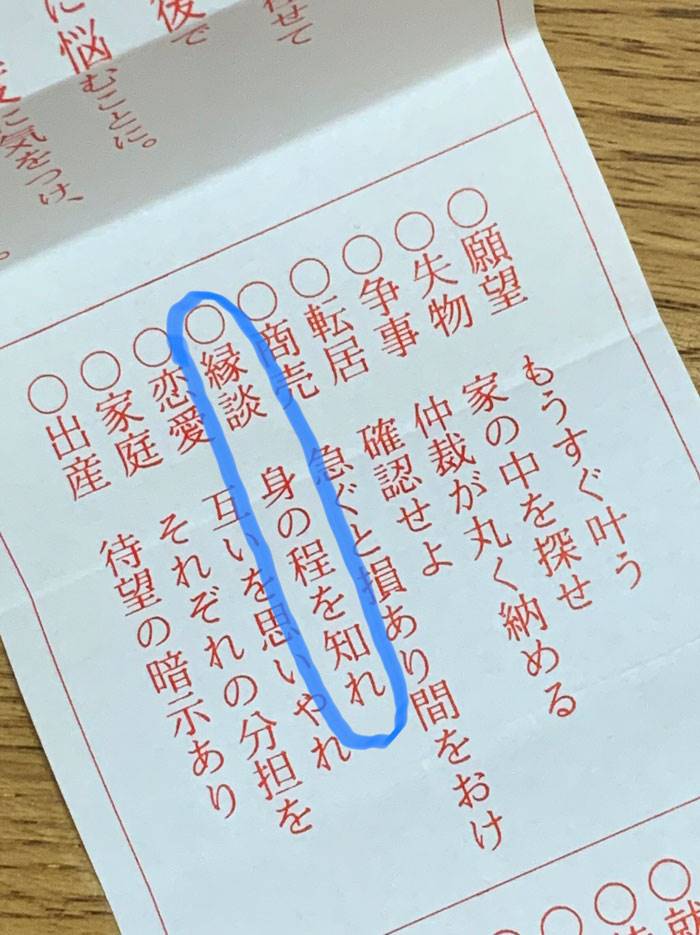 せて
後で
に悩むことに。
に気をつけ、
○願望 もうすぐ叶う
○失物 家の中を探せ
○争事 仲裁が丸く納める
○転居 確認せよ
○商売 急ぐと損あり間をおけ
○縁談 身の程を知れ
○恋愛 互いを思いやれ
○家庭 それぞれの分担を
○出産 待望の暗示あり